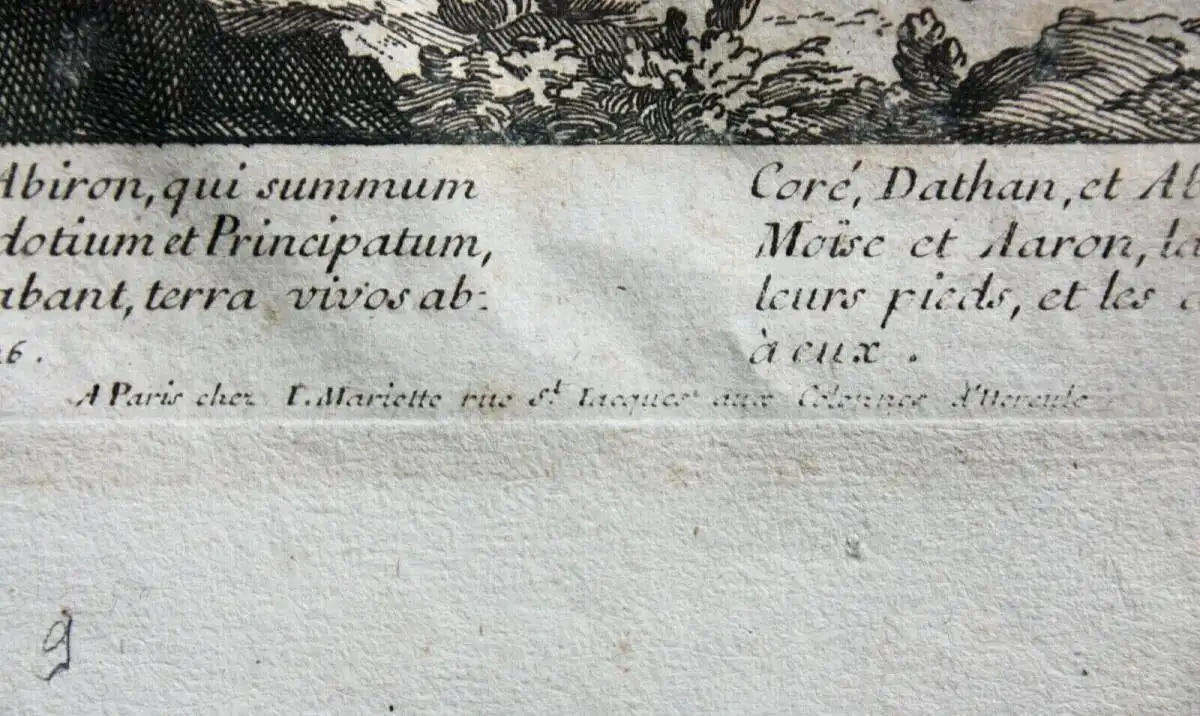 Abiron, qui summum
dotium et Principatum,
abant, terra vivos ab:
26.
Coré, Dathan, et Ab
Moïse et Aaron, la
leurs pieds, et les
à eux.
A Paris chez I. Mariette rue St. Iacques aux Colonnes d'Hercule
9